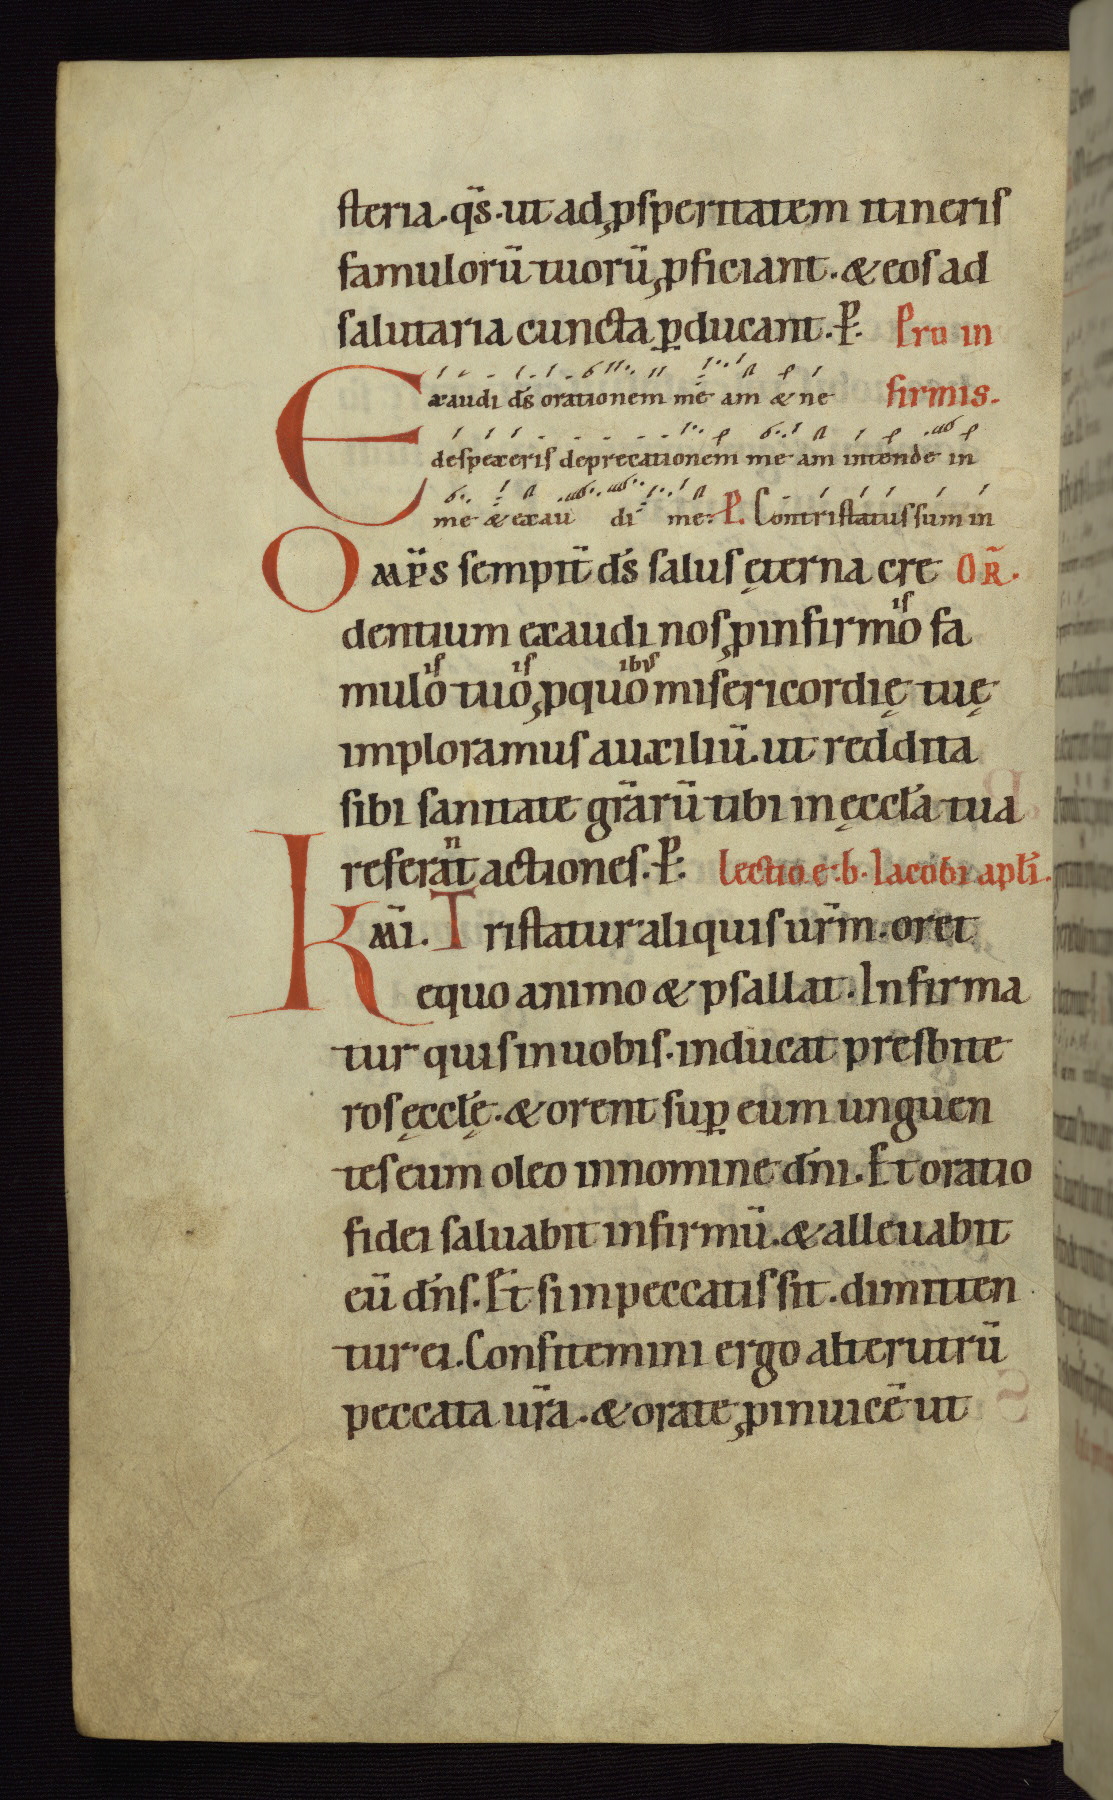 steria. q̄s. ut ad ꝓsperitatem itineris
famulorū tuorū ꝓficiant. & eos ad
salutaria cuncta ꝑducant. P̄. Pro in
Exaudi d̄s orationem me am & ne firmis.
despexeris deprecationem me am intende in
me & exau di me. P̄. Contristatus sum in
Omp̄s sempit̄ d̄s salus ęterna cre OR̄.
dentium exaudi nos ꝓ infirmo is fa
mulo is tuo is ꝓ quo ibus misericordię tuę
imploramus auxiliū. ut reddita
sibi sanitate gr̄arū tibi in ęccl̄a tua
referat n actiones. P̄. lectio e. b. Iacobi apl̄i.
Km̄i. Tristatur aliquis ur̄m. oret
equo animo & psallat. Infirma
tur quis in uobis. inducat presbite
ros ęccl̄ę. & orent suꝑ eum unguen
tes eum oleo in nomine dn̄i. Et oratio
fidei saluabit infirmū. & alleuabit
eū dn̄s. Et si in peccatis sit. dimitten
tur ei. Confitemini ergo alterutrū
peccata ur̄a. & orate ꝓ inuicē ut